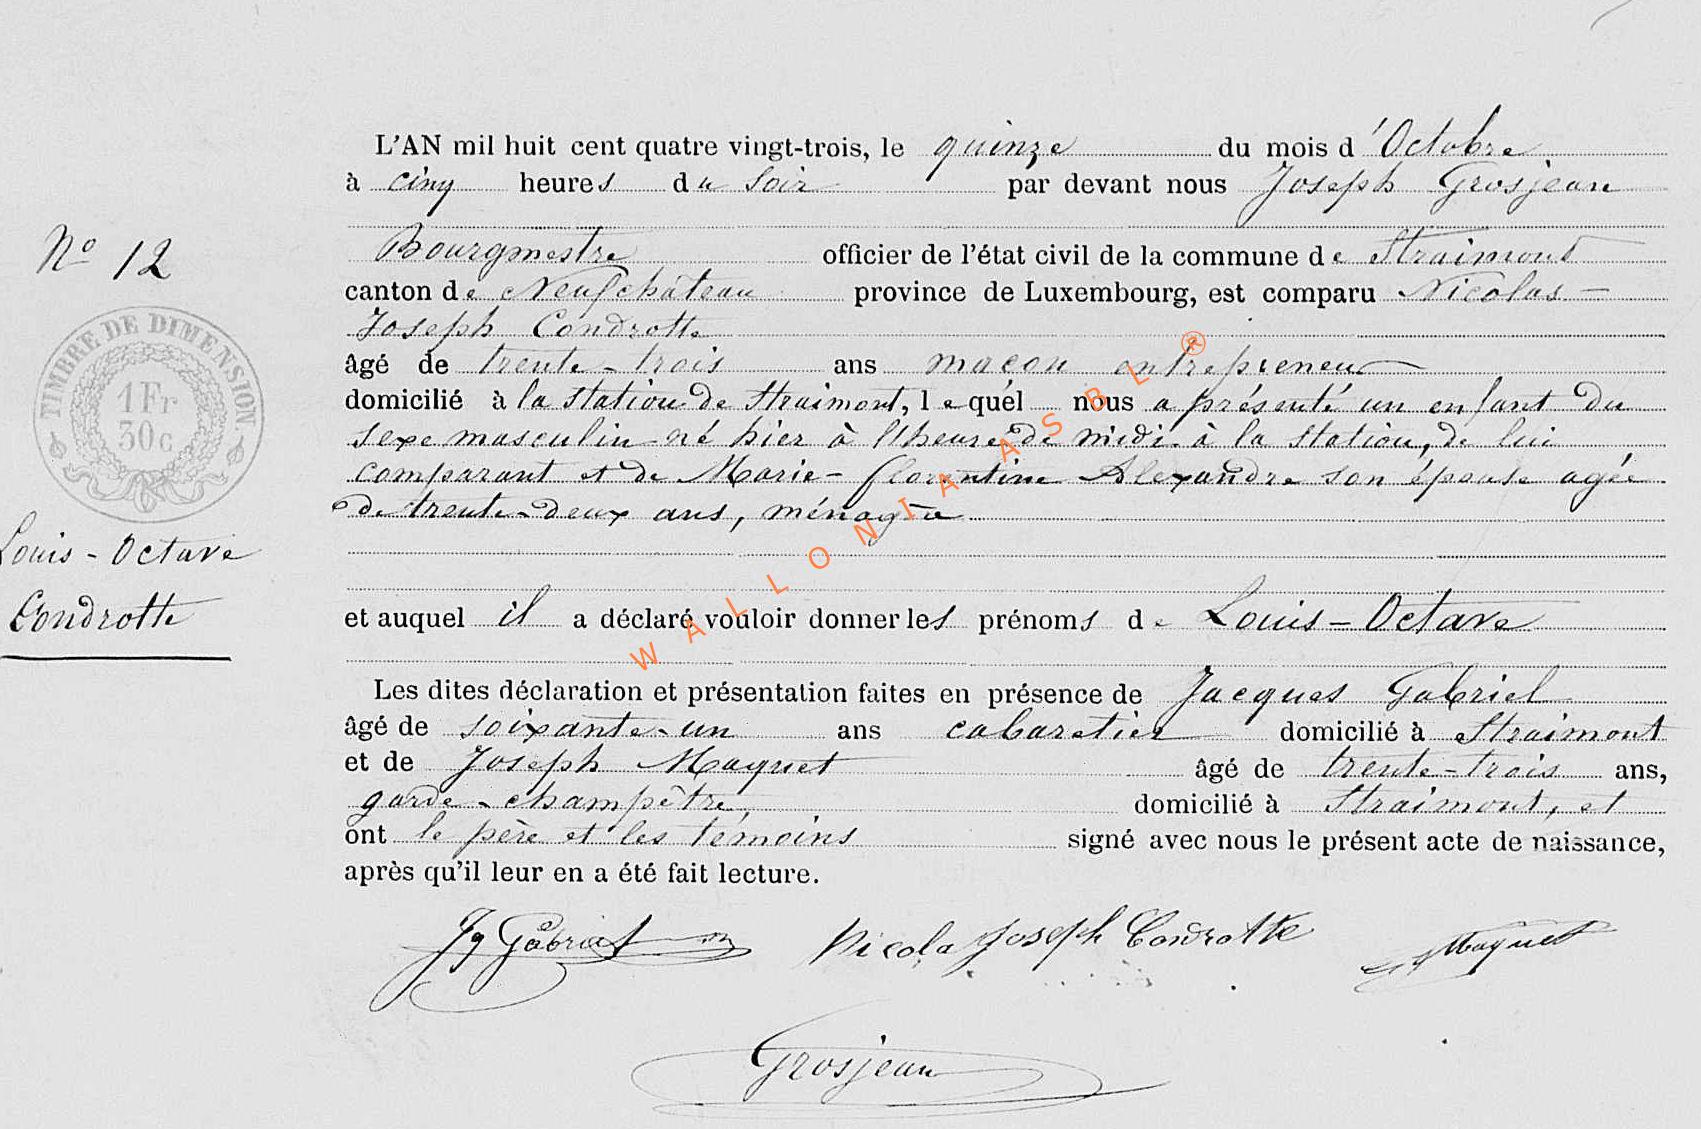 L'AN mil huit cent quatre vingt-trois, le quinze du mois d'Octobre
à cinq heures du soir par devant nous Joseph Grosjean
Bourgmestre officier de l'état civil de la commune de Straimont
N° 12
canton de Neufchâteau province de Luxembourg, est comparu Nicolas-
Joseph Condrotte
TIMBRE DE DIMENSION
1 Fr
30c
âgé de trente-trois ans maçon entrepreneur
domicilié à la station de Straimont, lequel nous a présenté un enfant du
sexe masculin né hier à l'heure de midi à la station, de lui
comparant et de Marie-florentine Alexandre son épouse agée
de trente-deux ans, ménagère
Louis-Octave
Condrotte
et auquel il a déclaré vouloir donner les prénoms de Louis-Octave
Les dites déclaration et présentation faites en présence de Jacques Gabriel
âgé de soixante-un ans cabaretier domicilié à Straimont
et de Joseph Maquet âgé de trente-trois ans,
garde-champêtre, domicilié à Straimont, et
ont le père et les témoins signé avec nous le présent acte de naissance,
après qu'il leur en a été fait lecture.
Jq Gabriel Nicola Joseph Condrotte Maquet
Grosjean
WALLONIA ASBL ®